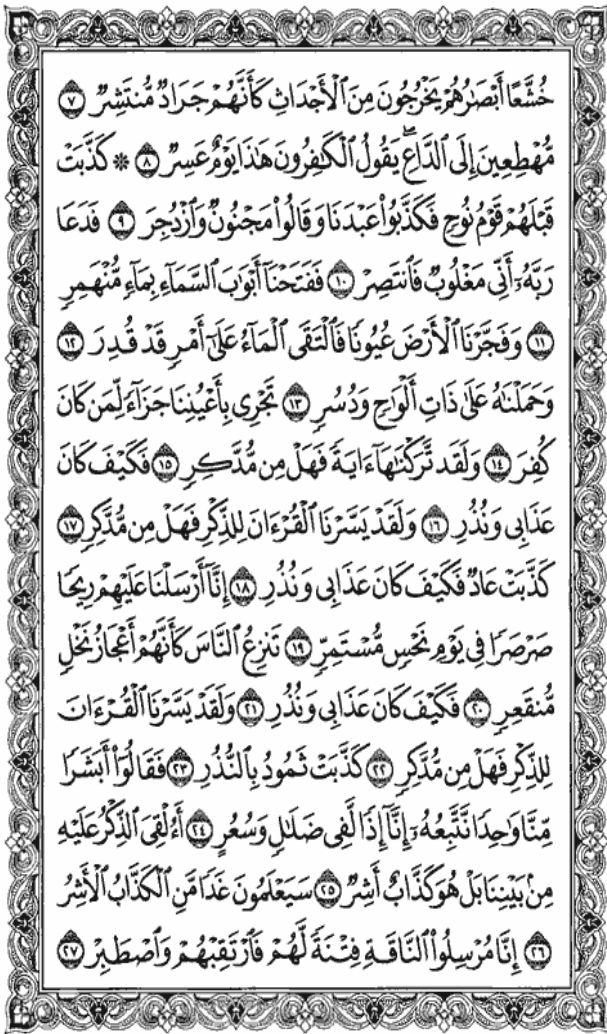 خُشَّعًا أَبْصَٰرُهُمْ يَخْرُجُونَ مِنَ ٱلْأَجْدَاثِ كَأَنَّهُمْ جَرَادٌ مُّنتَشِرٌ ٧
مُّهْطِعِينَ إِلَى ٱلدَّاعِ ۖ يَقُولُ ٱلْكَٰفِرُونَ هَٰذَا يَوْمٌ عَسِرٌ ٨ ۞ كَذَّبَتْ
قَبْلَهُمْ قَوْمُ نُوحٍ فَكَذَّبُوا۟ عَبْدَنَا وَقَالُوا۟ مَجْنُونٌ وَٱزْدُجِرَ ٩ فَدَعَا
رَبَّهُۥٓ أَنِّى مَغْلُوبٌ فَٱنتَصِرْ ١٠ فَفَتَحْنَآ أَبْوَٰبَ ٱلسَّمَآءِ بِمَآءٍ مُّنْهَمِرٍ
١١ وَفَجَّرْنَا ٱلْأَرْضَ عُيُونًا فَٱلْتَقَى ٱلْمَآءُ عَلَىٰٓ أَمْرٍ قَدْ قُدِرَ ١٢
وَحَمَلْنَٰهُ عَلَىٰ ذَاتِ أَلْوَٰحٍ وَدُسُرٍ ١٣ تَجْرِى بِأَعْيُنِنَا جَزَآءً لِّمَن كَانَ
كُفِرَ ١٤ وَلَقَد تَّرَكْنَٰهَآ ءَايَةً فَهَلْ مِن مُّدَّكِرٍ ١٥ فَكَيْفَ كَانَ
عَذَابِى وَنُذُرِ ١٦ وَلَقَدْ يَسَّرْنَا ٱلْقُرْءَانَ لِلذِّكْرِ فَهَلْ مِن مُّدَّكِرٍ ١٧
كَذَّبَتْ عَادٌ فَكَيْفَ كَانَ عَذَابِى وَنُذُرِ ١٨ إِنَّآ أَرْسَلْنَا عَلَيْهِمْ رِيحًا
صَرْصَرًا فِى يَوْمِ نَحْسٍ مُّسْتَمِرٍّ ١٩ تَنزِعُ ٱلنَّاسَ كَأَنَّهُمْ أَعْجَازُ نَخْلٍ
مُّنقَعِرٍ ٢٠ فَكَيْفَ كَانَ عَذَابِى وَنُذُرِ ٢١ وَلَقَدْ يَسَّرْنَا ٱلْقُرْءَانَ
لِلذِّكْرِ فَهَلْ مِن مُّدَّكِرٍ ٢٢ كَذَّبَتْ ثَمُودُ بِٱلنُّذُرِ ٢٣ فَقَالُوٓا۟ أَبَشَرًا
مِّنَّا وَٰحِدًا نَّتَّبِعُهُۥٓ إِنَّآ إِذًا لَّفِى ضَلَٰلٍ وَسُعُرٍ ٢٤ أَءُلْقِىَ ٱلذِّكْرُ عَلَيْهِ
مِنۢ بَيْنِنَا بَلْ هُوَ كَذَّابٌ أَشِرٌ ٢٥ سَيَعْلَمُونَ غَدًا مَّنِ ٱلْكَذَّابُ ٱلْأَشِرُ
٢٦ إِنَّا مُرْسِلُوا۟ ٱلنَّاقَةِ فِتْنَةً لَّهُمْ فَٱرْتَقِبْهُمْ وَٱصْطَبِرْ ٢٧